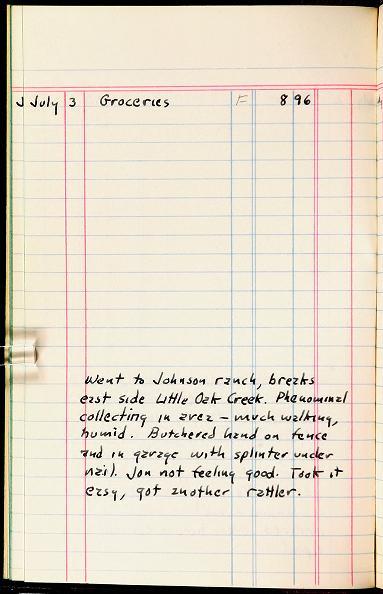 J July 3 Groceries F 8 96
Went to Johnson ranch, breaks
east side Little Oak Creek. Phenominal
collecting in area – much walking,
humid. Butchered hand on fence
and in garage with splinter under
nail. Jon not feeling good. Took it
easy, got another rattler.